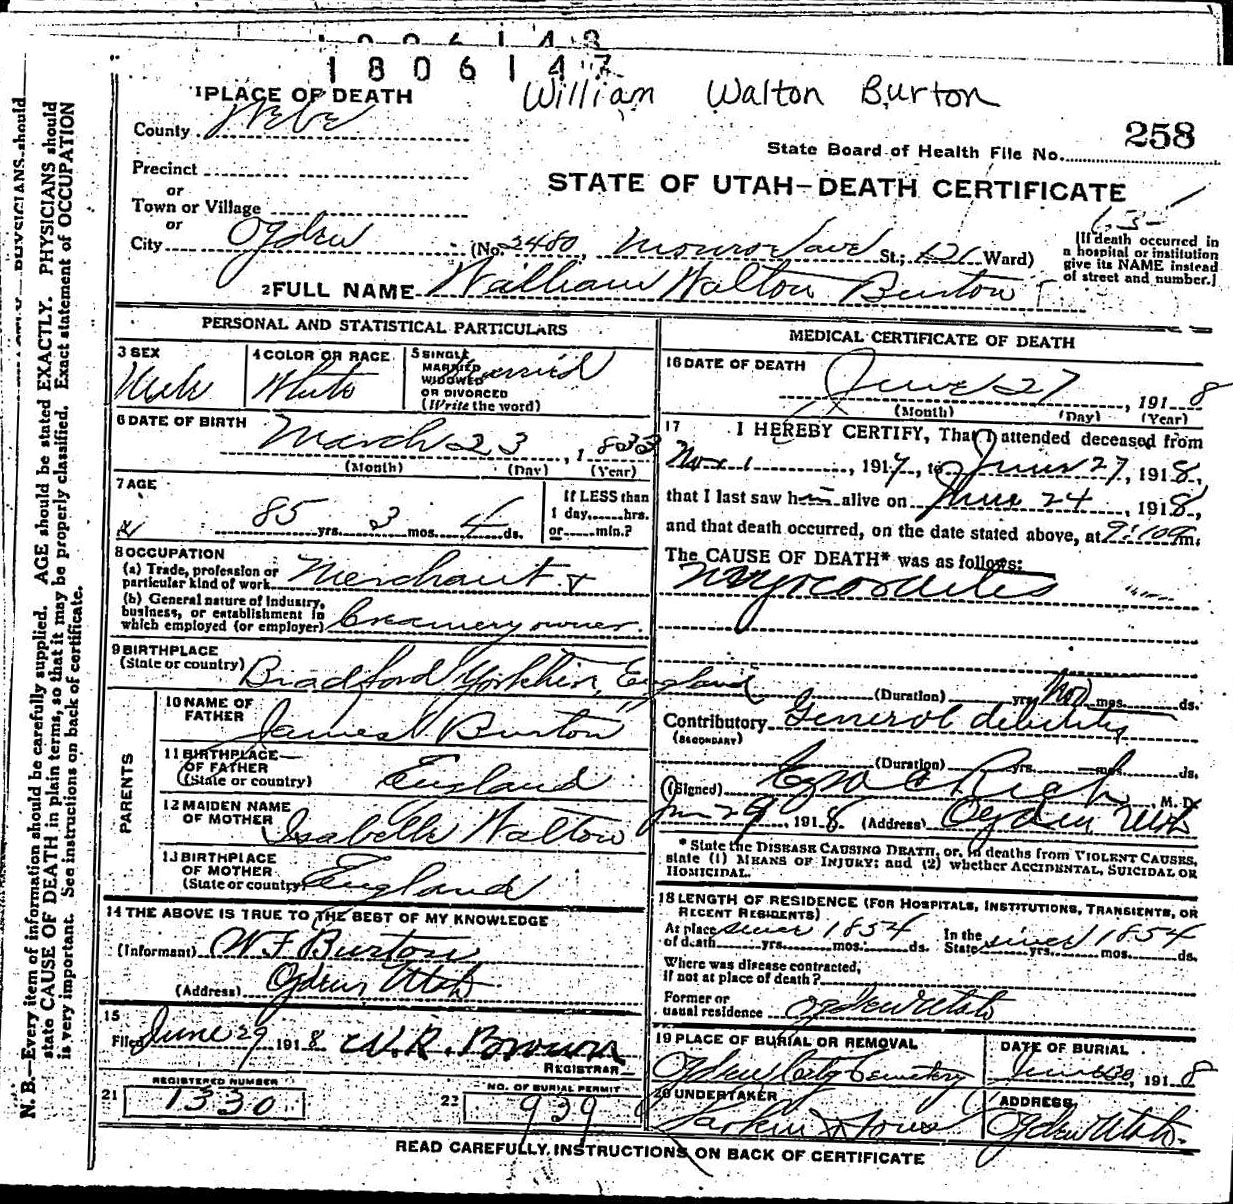 1806147
William Walton Burton
1 PLACE OF DEATH
County Weber
258
State Board of Health File No.
Precinct
or
Town or Village
or
STATE OF UTAH—DEATH CERTIFICATE
City Ogden (No. 2480, Monroe ave St.; Ward)
[If death occurred in a hospital or institution give its NAME instead of street and number.]
2 FULL NAME William Walton Burton
PERSONAL AND STATISTICAL PARTICULARS
3 SEX Male
4 COLOR OR RACE White
5 SINGLE MARRIED WIDOWED OR DIVORCED (Write the word) Married
6 DATE OF BIRTH March 23, 1833
(Month) (Day) (Year)
7 AGE 85 yrs. 3 mos. 4 ds.
If LESS than 1 day, hrs. or min.?
8 OCCUPATION
(a) Trade, profession or particular kind of work Merchant &
(b) General nature of industry, business, or establishment in which employed (or employer) Creamery owner.
9 BIRTHPLACE (State or country) Bradford Yorkshire, England
PARENTS
10 NAME OF FATHER James Burton
11 BIRTHPLACE OF FATHER (State or country) England
12 MAIDEN NAME OF MOTHER Isabella Walton
13 BIRTHPLACE OF MOTHER (State or country) England
14 THE ABOVE IS TRUE TO THE BEST OF MY KNOWLEDGE
(Informant) W F Burton
(Address) Ogden Utah
15
Filed June 29, 1918 W. R. Brown
REGISTRAR
21 REGISTERED NUMBER 1330
22 NO. OF BURIAL PERMIT 939
MEDICAL CERTIFICATE OF DEATH
16 DATE OF DEATH June 27, 1918
(Month) (Day) (Year)
17 I HEREBY CERTIFY, That I attended deceased from
Nov 1, 1917, to June 27, 1918,
that I last saw him alive on June 24, 1918,
and that death occurred, on the date stated above, at m.
The CAUSE OF DEATH* was as follows:
Myocarditis
(Duration) yrs. mos. ds.
Contributory General debility
(SECONDARY)
(Duration) yrs. mos. ds.
(Signed) Ezra C Rich, M. D.
Jun 29, 1918. (Address) Ogden Utah
* State the DISEASE CAUSING DEATH, or, in deaths from VIOLENT CAUSES,
state (1) MEANS OF INJURY; and (2) whether ACCIDENTAL, SUICIDAL OR
HOMICIDAL.
18 LENGTH OF RESIDENCE (FOR HOSPITALS, INSTITUTIONS, TRANSIENTS, OR
RECENT RESIDENTS)
At place of death since 1854 yrs. mos. ds. In the State since 1854 yrs. mos. ds.
Where was disease contracted,
if not at place of death?
Former or
usual residence Ogden Utah
19 PLACE OF BURIAL OR REMOVAL Ogden City Cemetery
DATE OF BURIAL June 30, 1918
20 UNDERTAKER Larkin & Sons
ADDRESS Ogden Utah.
READ CAREFULLY INSTRUCTIONS ON BACK OF CERTIFICATE
N. B.—Every item of information should be carefully supplied. AGE should be stated EXACTLY. PHYSICIANS should
state CAUSE OF DEATH in plain terms, so that it may be properly classified. Exact statement of OCCUPATION
is very important. See instructions on back of certificate.